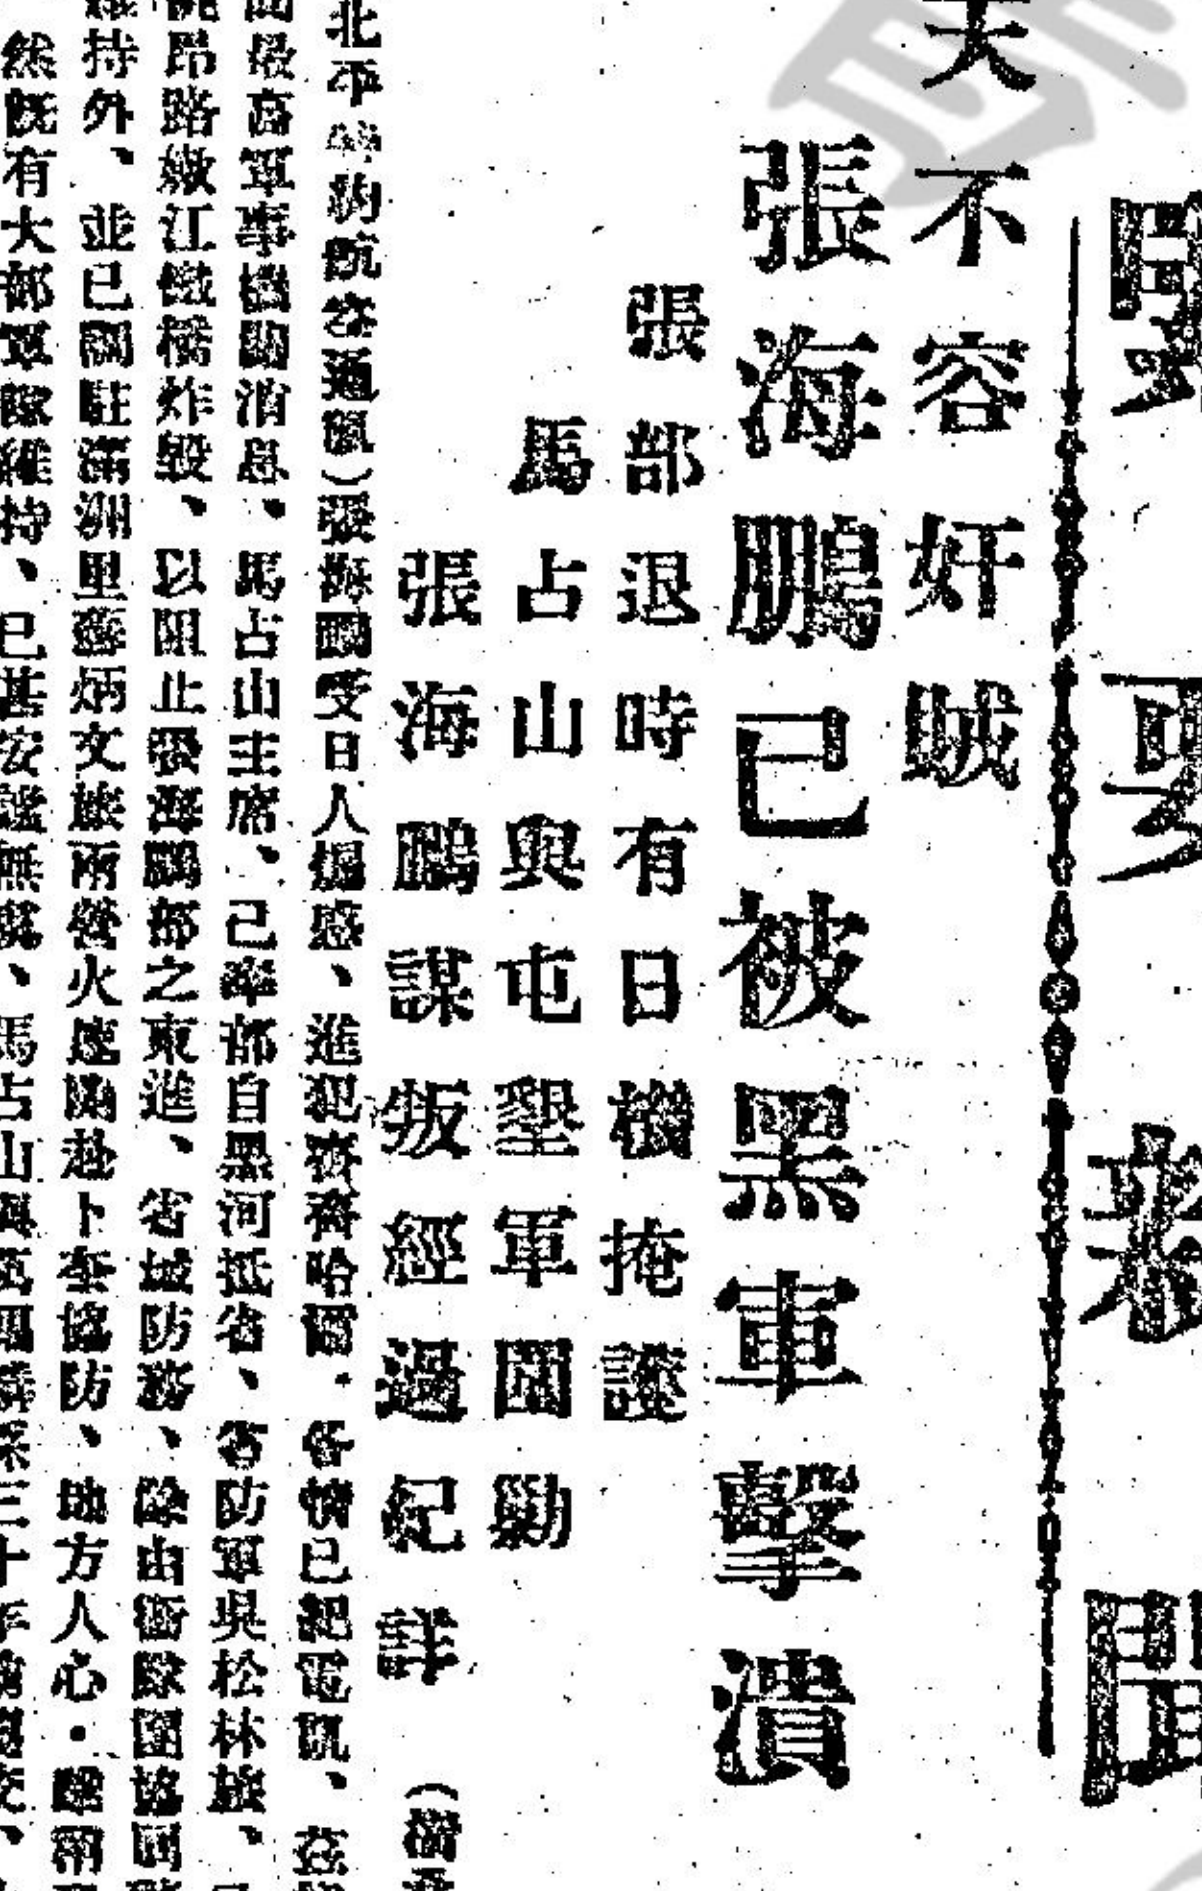 要聞
天不容奸賊
張海鵬已被黑軍擊潰
張部退時有日機掩護
馬占山與屯墾軍圍勦
張海鵬謀叛經過紀詳
北平特約航空通訊）張海鵬受日人煽惑、進犯齊齊哈爾．各情已誌電訊、茲
最高軍事機關消息、馬占山主席、已率部自黑河抵省、省防軍吳松林旅、
昂路嫩江鐵橋炸毀、以阻止張海鵬部之東進、省城防務、除由衛隊團協同
維持外、並已調駐滿洲里蘇炳文旅兩營火速開赴卜奎協防、地方人心．
然既有大部軍隊維持、已甚安謐無虞、馬占山